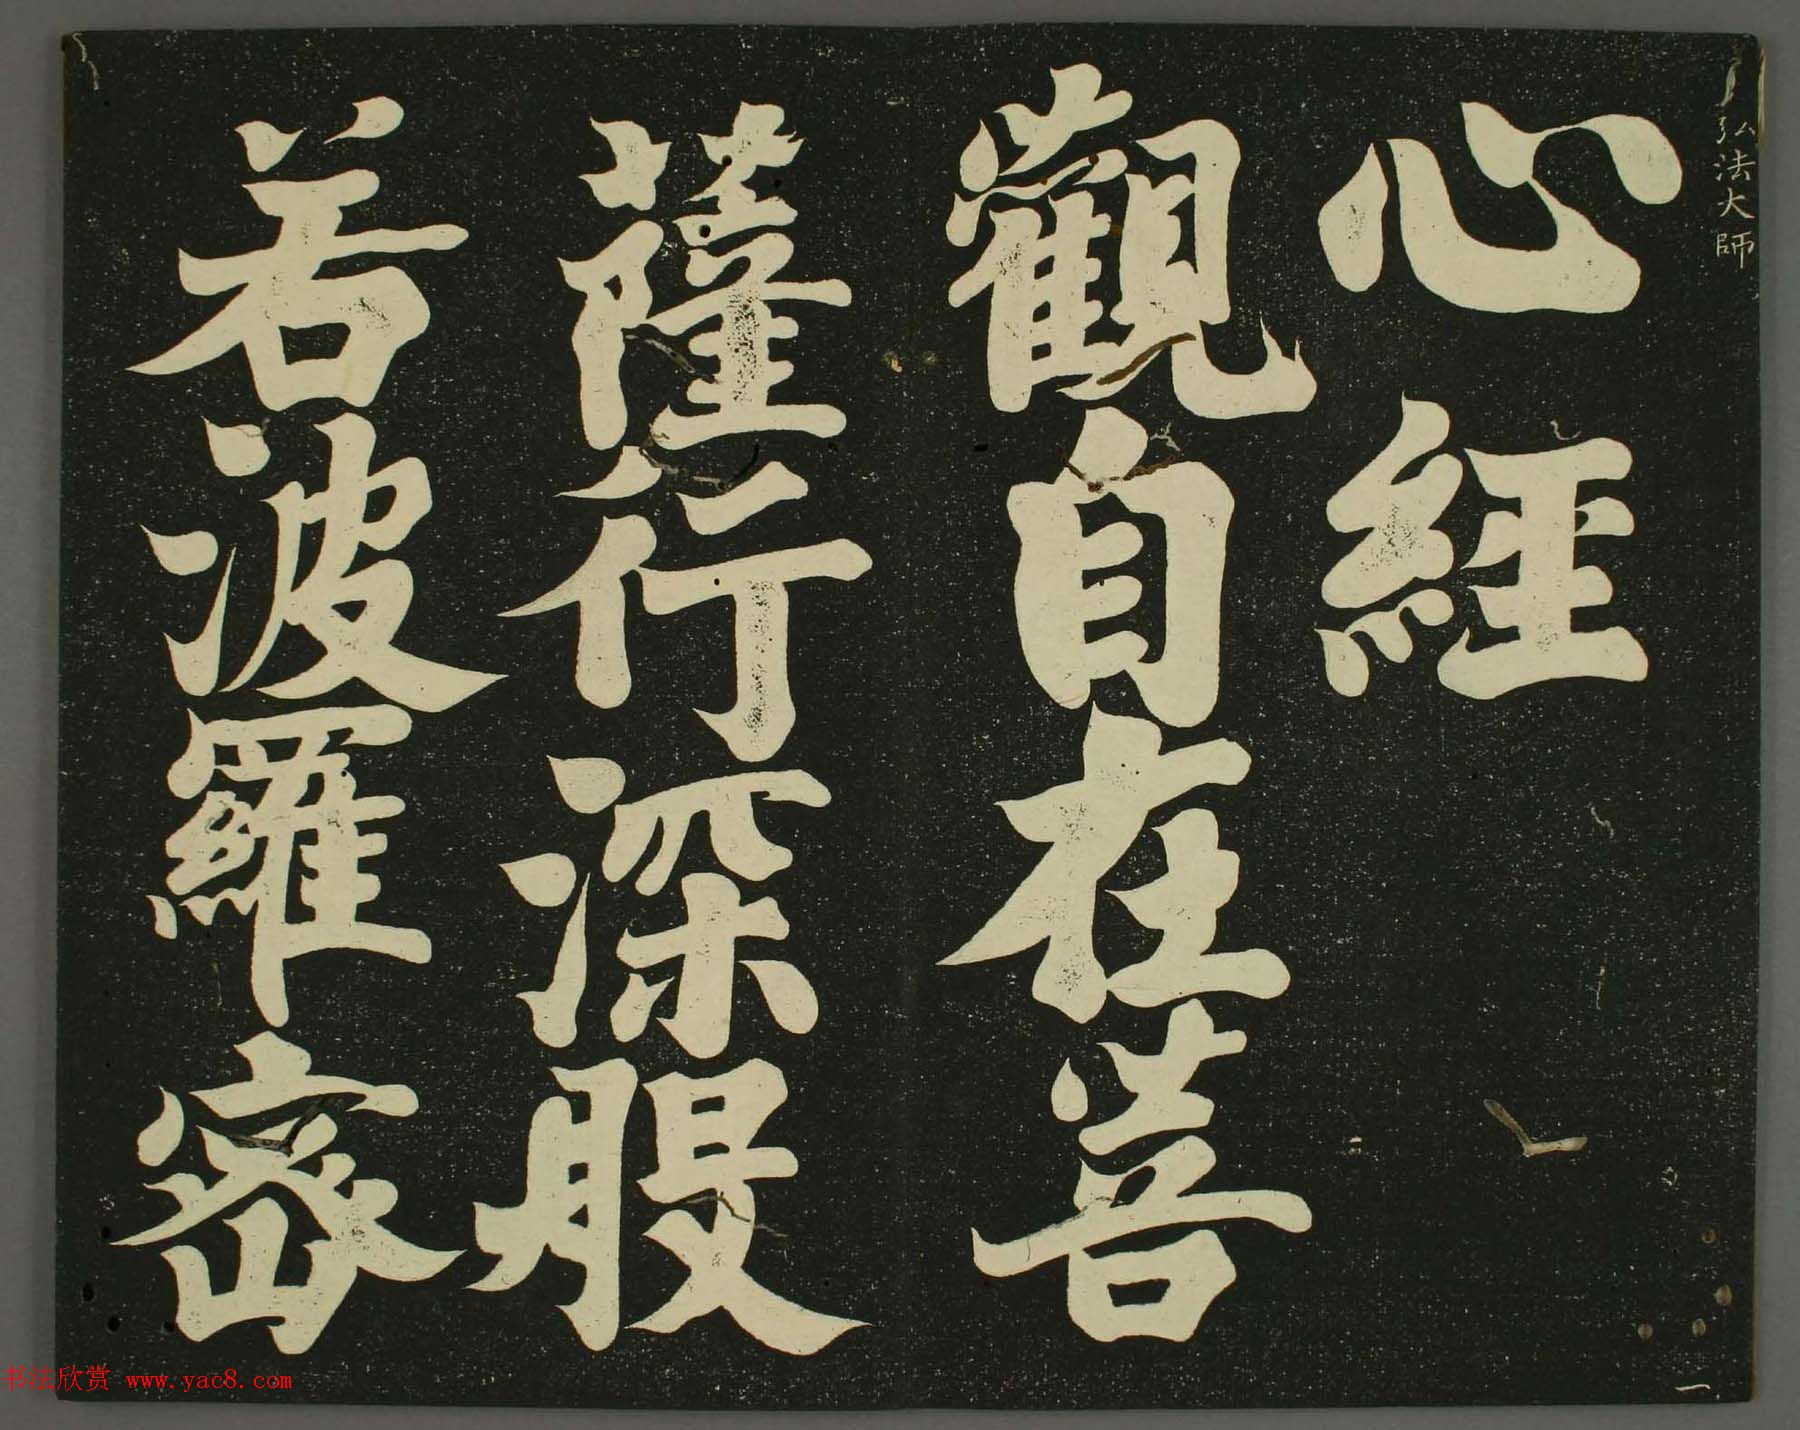 弘法大師
心經
觀自在菩
薩行深般
若波羅密
一
书法欣赏 www.yac8.com